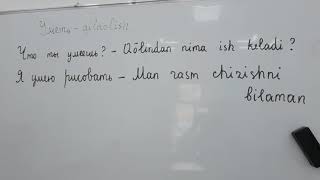 Уметь - qilaolish
Что ты умеешь? - Qõlindan nima ish keladi?
Я умею рисовать - Man rasm chizishni
bilaman